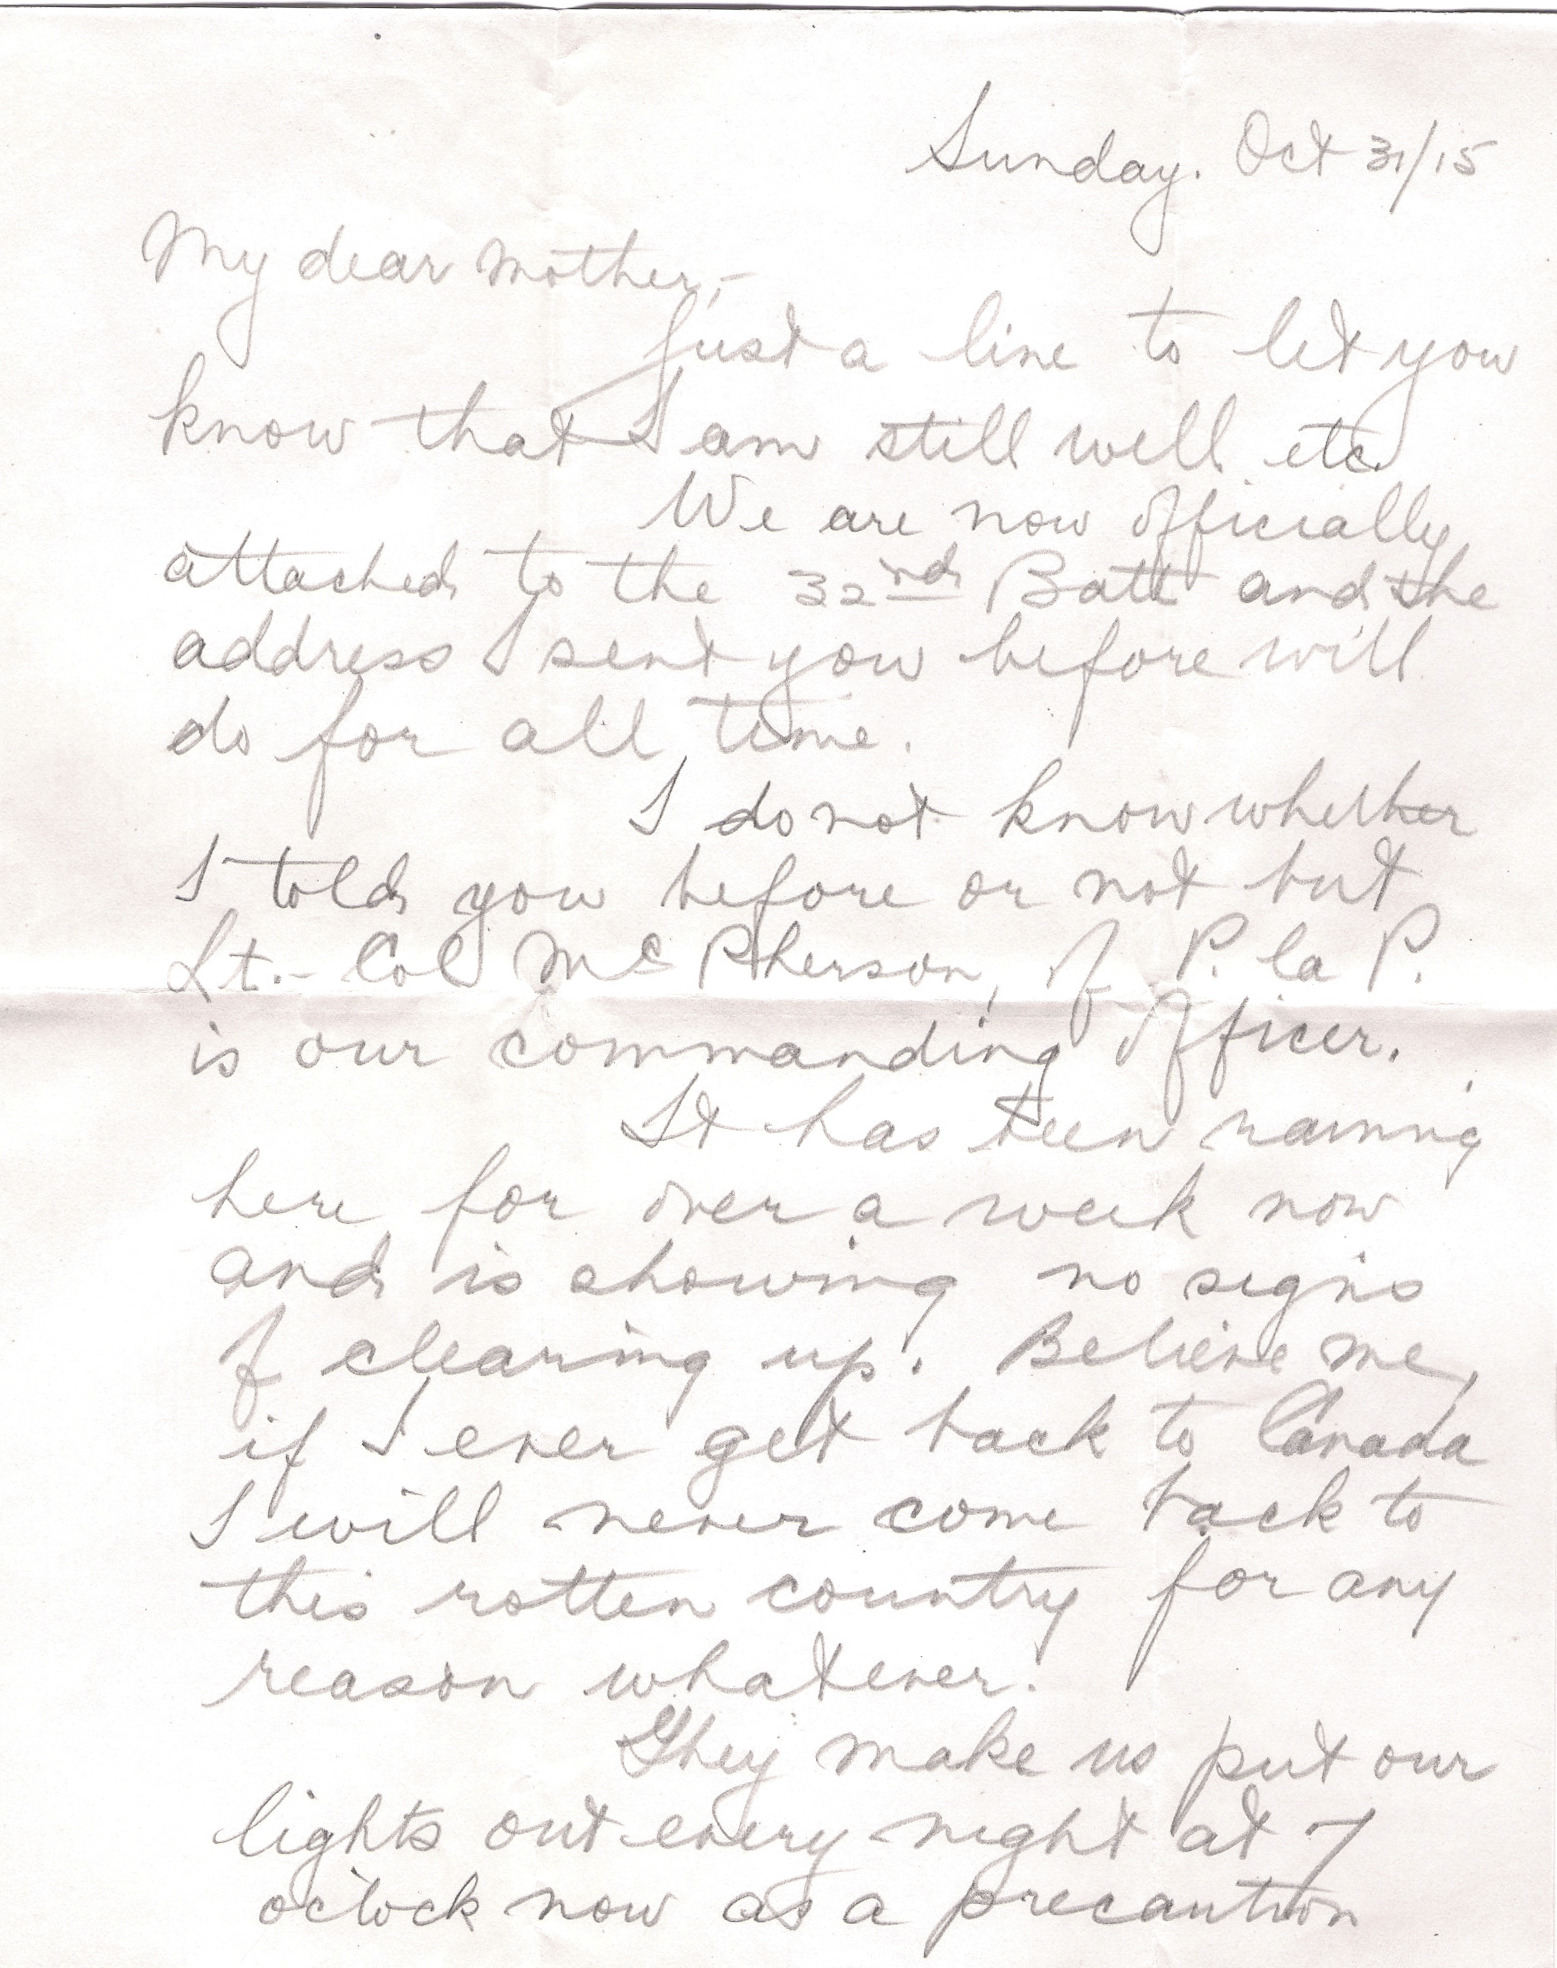 Sunday. Oct 31/15
My dear mother,-
Just a line to let you
know that I am still well etc.
We are now officially
attached to the 32nd Batt and the
address I sent you before will
do for all time.
I do not know whether
I told you before or not but
Lt.- Col McPherson, of P. la P.
is our commanding officer.
It has been raining
here for over a week now
and is showing no signs
of clearing up. Believe me,
if I ever get back to Canada
I will never come back to
this rotten country for any
reason whatever.
They make us put our
lights out every night at 7
o'clock now as a precaution